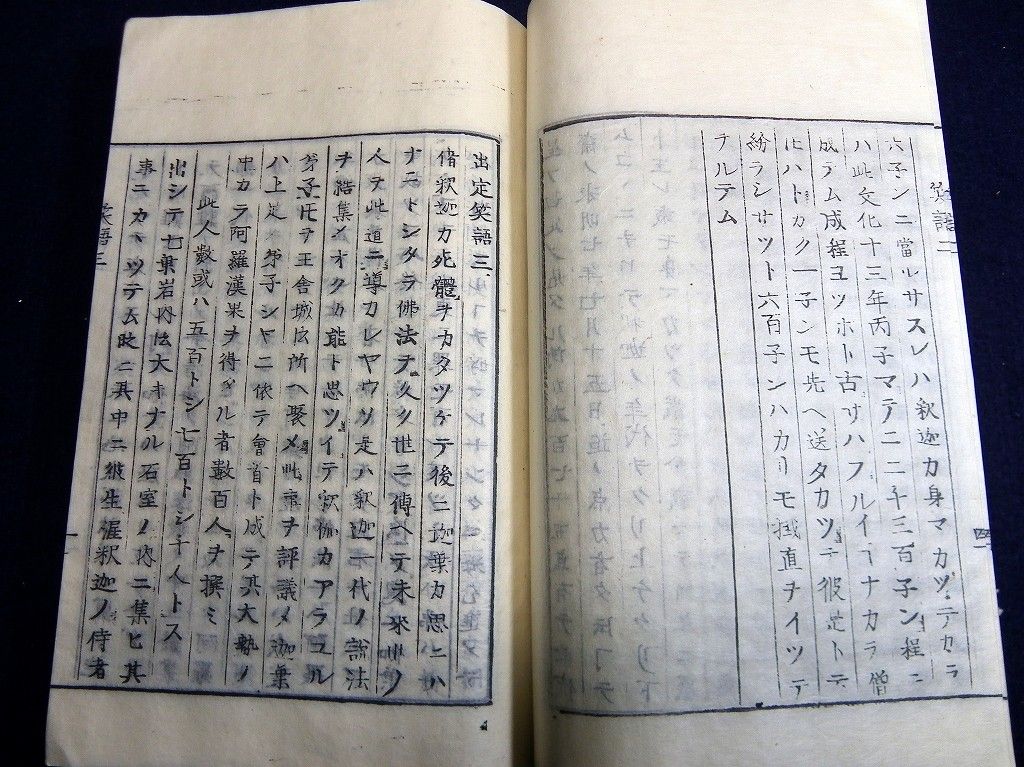 笑語二
六子ンニ當ルサスレハ釈迦カ身マカツテカラ
ハ此文化十三年丙子マテニ二千三百子ン程ニ
成テム成程ヨツホト古サハフルイーナカラ僧
ヒハトカク一子ンモ先ヘ送タカツテ彼是ト云
紛ラシサツト六百子ンハカリモ掛直チイツテ
チルテム
出定笑語三
偖釈迦カ死體ヲカタツケテ後ニ迦葉カ思ニハ
ナニトシタラ佛法ヲ久ク世ニ傳ヘテ未來ノ
人ヲ此道ニ導カレヤウソ是ハ釈迦一代ノ說法
ヲ結集メオクカ能ト思ツイテ釈迦カアラユル
弟子圧ヲ王舎城ノ所ヘ聚メ此ヲ評議メ迦葉
ハ上足ノ弟子シヤニ依テ會首ト成テ其大勢ノ
中カラ阿羅漢果ヲ得タル者數百人ヲ撰ミ
此人数或ハ五百トシ七百トシ千人トス
出シテ七葉岩ノ大キナル石室ノ内ニ集ヒ其
事ニカヽツテム此ニ其中ニ彼生涯釈迦ノ侍者
笑語三